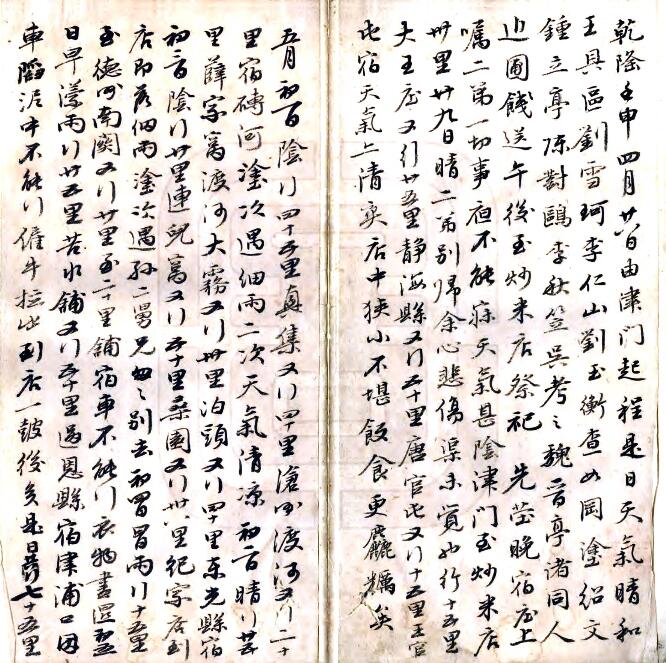 乾隆壬申四月廿八日由津門起程是日天氣晴和
王具區劉雪珂李仁山劉玉衡查如岡塗紹文
鍾立亭陈對鷗李秋笠吳考之魏晉亭諸同人
迆圃餞送午後至炒米店祭祀先塋晚宿店上
囑二弟一切事夜不能寐天氣甚陰津門至炒米店
卅里廿九日晴二弟別歸余心悲傷渠亦實如行十五里
大王庄又行廿五里静海縣又行五十里唐官屯又行十五里王官
屯宿天氣上清爽店中狹小不堪飲食更麤糲矣
五月初一日陰行四十五里興集又行四十里滄州渡河又行二十
里宿磚河塗次遇细雨二次天氣清凉初二日晴行廿五
里薛家窩渡河大霧又行卅里泊頭又行四十里東光縣宿
初三日陰行廿里連兒窩又行五十里桑園又行廿八里紀家店到
店即落细雨塗次遇孫二曼兄匆匆別去初四日冒雨行十五里
至德州南関又行廿里至二十里舖宿車不能行衣物書運
日早濛雨行廿五里苦水舖又行五十里過恩縣宿津浦口因
車䧟泥中不能行僱牛拉出到店一鼓後矣是日共行七十五里